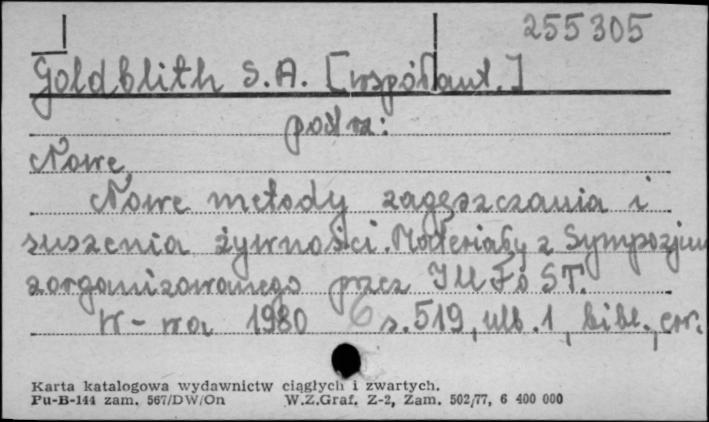 255305
Goldblith S.A. [współaut.]
patrz:
Nowe
Nowe metody zagęszczania i
suszenia żywności. Materiały z Sympozjum
zorganizowanego przez IUFoST.
W-wa 1980 s. 519, ulb. 1, bibl.,
Karta katalogowa wydawnictw ciągłych i zwartych.
Pu-B-144 zam. 567/DW/On W.Z.Graf. Z-2, Zam. 502/77, 6 400 000